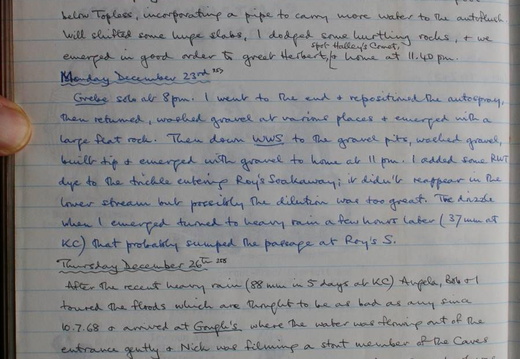 below Topless, incorporating a pipe to carry more water to the autoflush
Will shifted some huge slabs, I dodged some hurtling rocks, & we
emerged in good order to greet Herbert, spot Halley's Comet, & home at 11.40 pm.
Monday December 23rd 257
Grebe solo at 8pm. I went to the end & repositioned the autospray,
then returned, washed gravel at various places & emerged with a
large flat rock. Then down WWS to the gravel pits, washed gravel,
built tip & emerged with gravel to home at 11 pm. I added some RWT
dye to the trickle entering Roy's Soakaway; it didn't reappear in the
lower stream but possibly the dilution was too great. The drizzle
when I emerged turned to heavy rain a few hours later (37 mm at
KC) that probably sumped the passage at Roy's S.
Thursday December 26th 258
After the recent heavy rain (88 mm in 5 days at KC) Angela, Bob & I
toured the floods which are thought to be as bad as any since
10.7.68 & arrived at Gough's where the water was flowing out of the
entrance gently & Nick was filming a stout member of the Caves